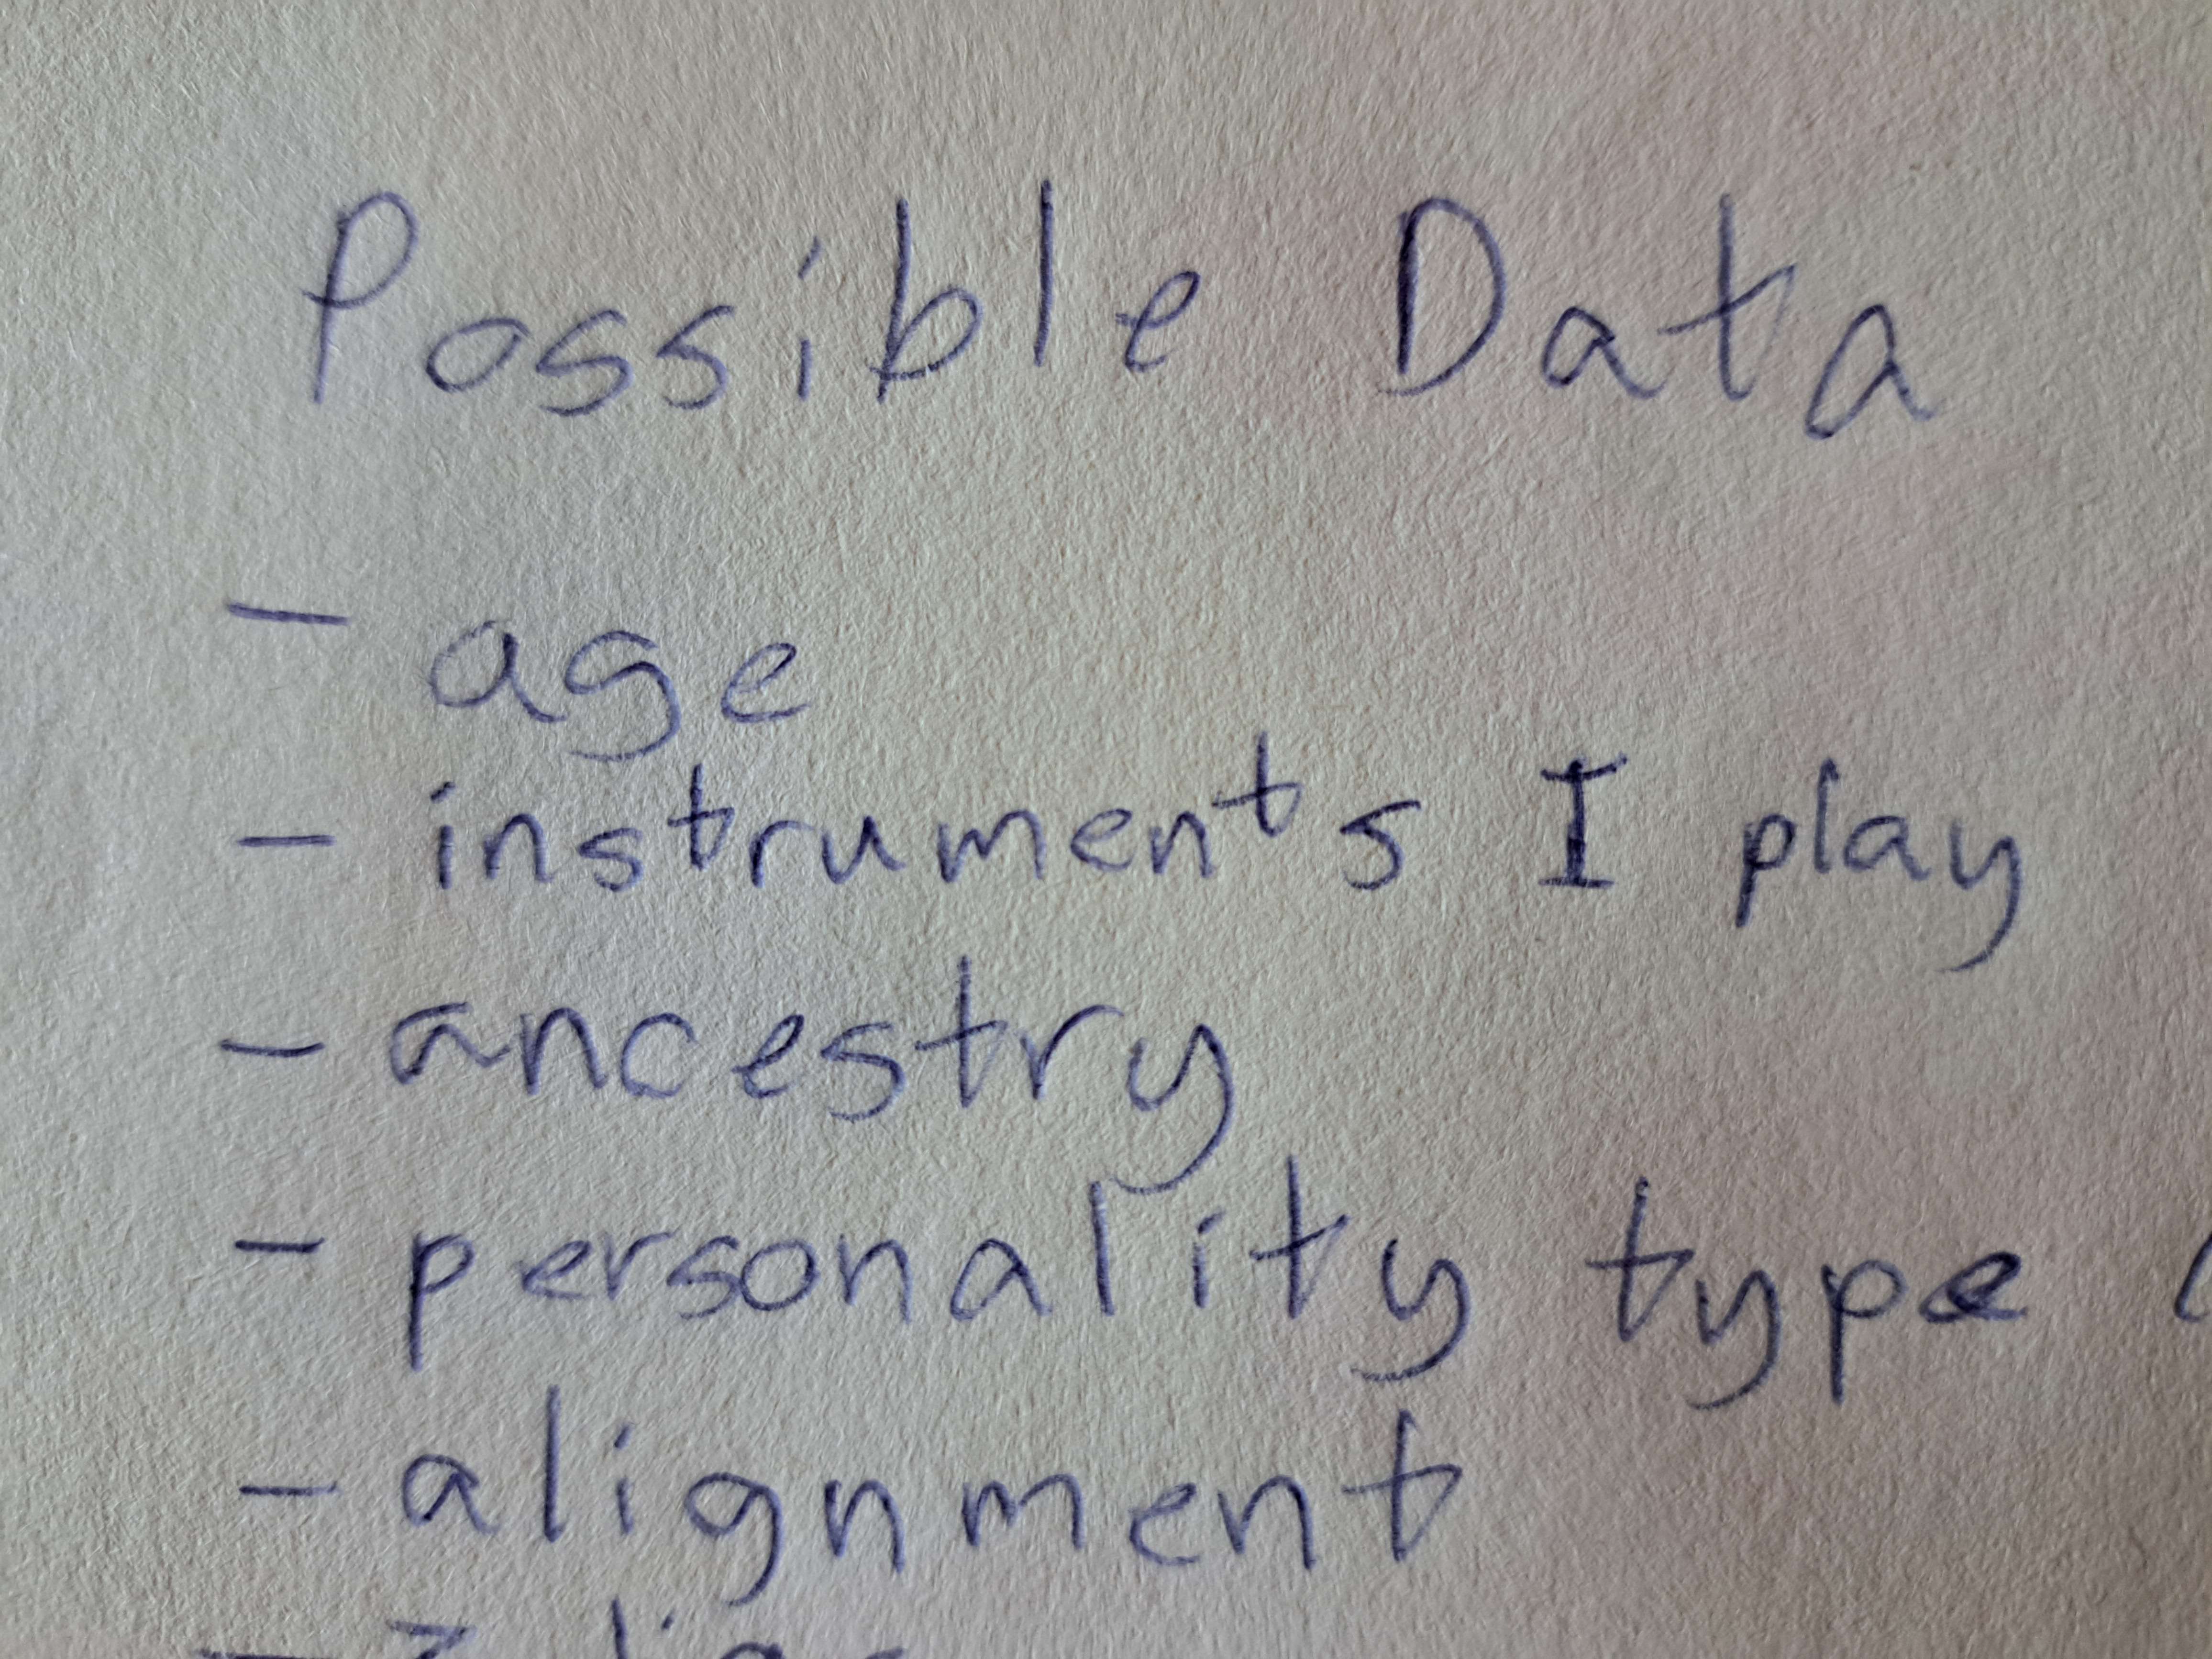 Possible Data
- age
- instruments I play
- ancestry
- personality type (
- alignment